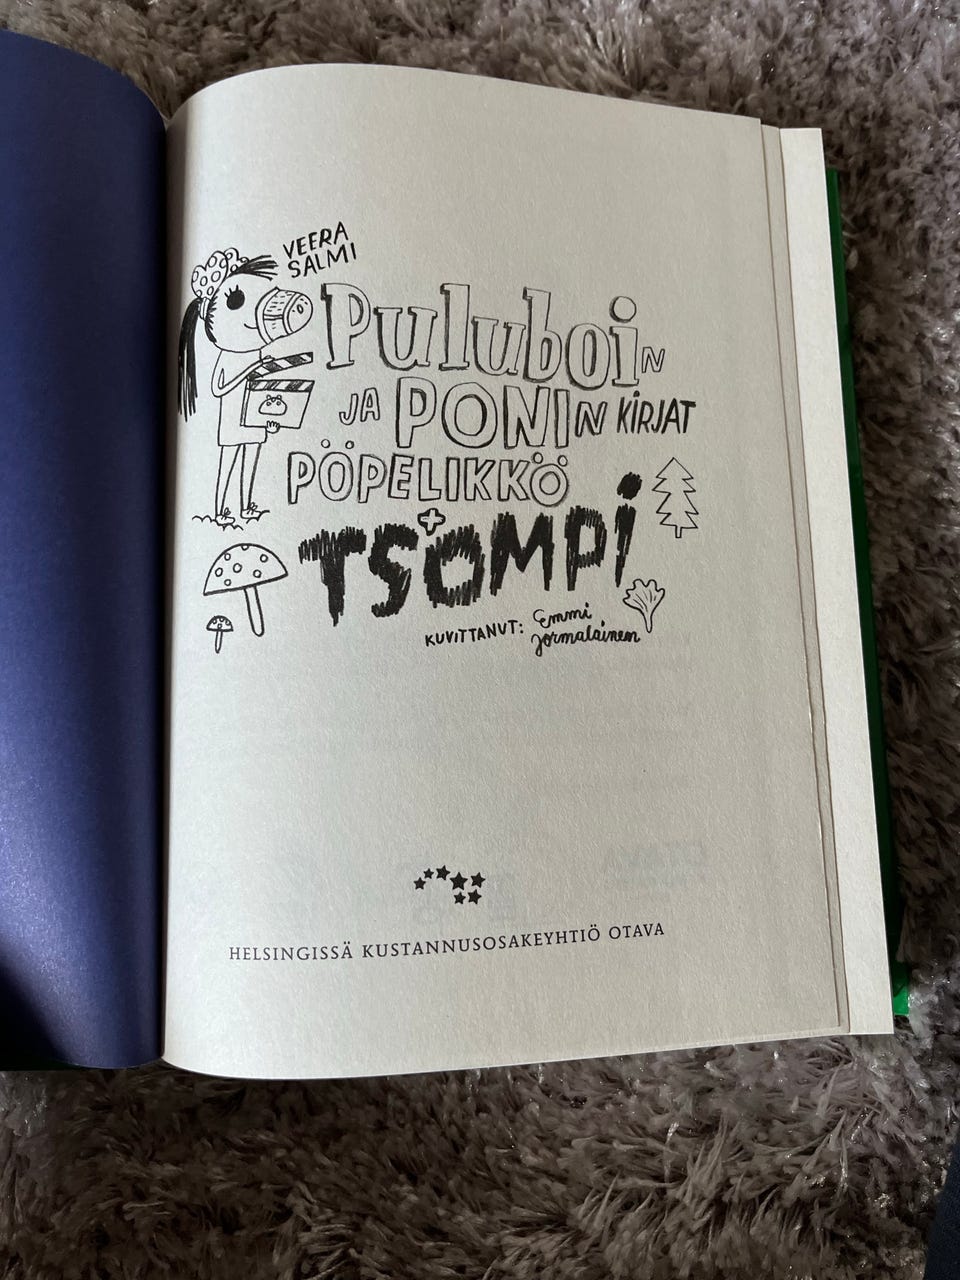 VEERA
SALMI
Puluboin
JA PONIN KIRJAT
PÖPELIKKÖ
TSOMPI
KUVITTANUT: Emmi
Jormalainen
HELSINGISSÄ KUSTANNUSOSAKEYHTIÖ OTAVA